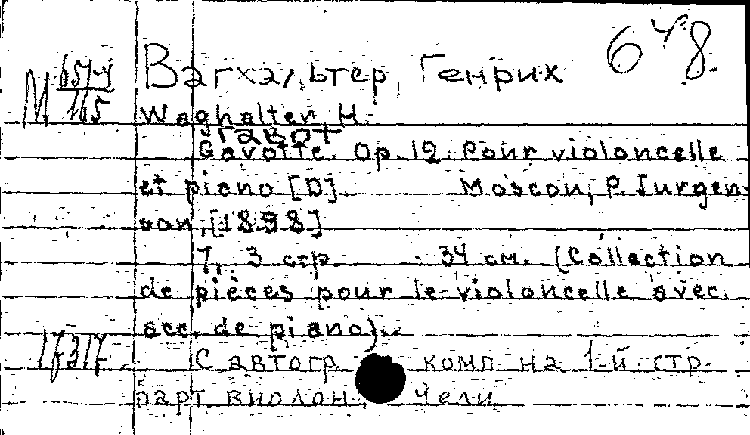 648
Вагхальтер, Генрих
М
165
Waghalter, H.
Гавот
Gavotte. Op. 12. Pour violoncelle
et piano [D]. Moscou, P. Jurgen-
son, [1898]
7, 3 стр. 34 см. (Collection
de pièces pour le violoncelle avec.
acc. de piano).
С автогр комп на 1-й стр.
парт виолон чели